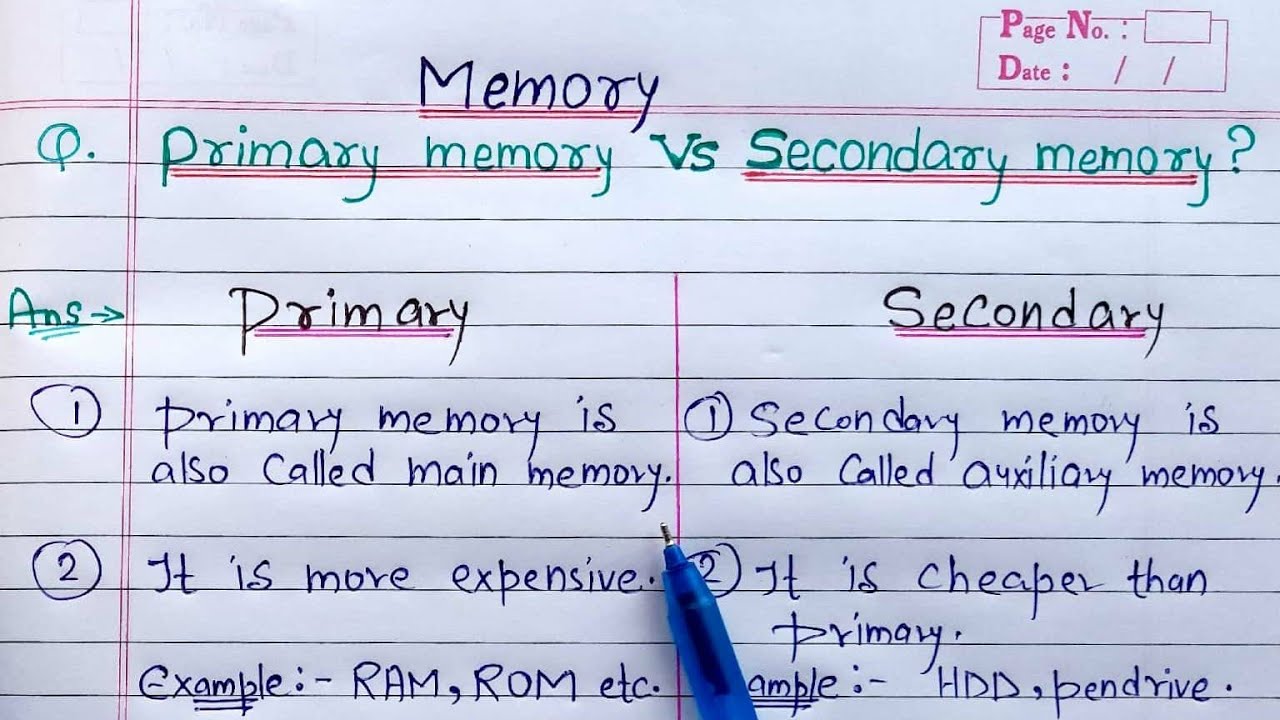 Page No. :
Date : / /
Memory
Q. Primary memory Vs Secondary memory?
Ans→
Primary
① Primary memory is
also called main memory.
② It is more expensive.
Example :- RAM, ROM etc.
Secondary
① Secondary memory is
also called auxiliary memory.
② It is cheaper than
primary.
ample :- HDD, pendrive.